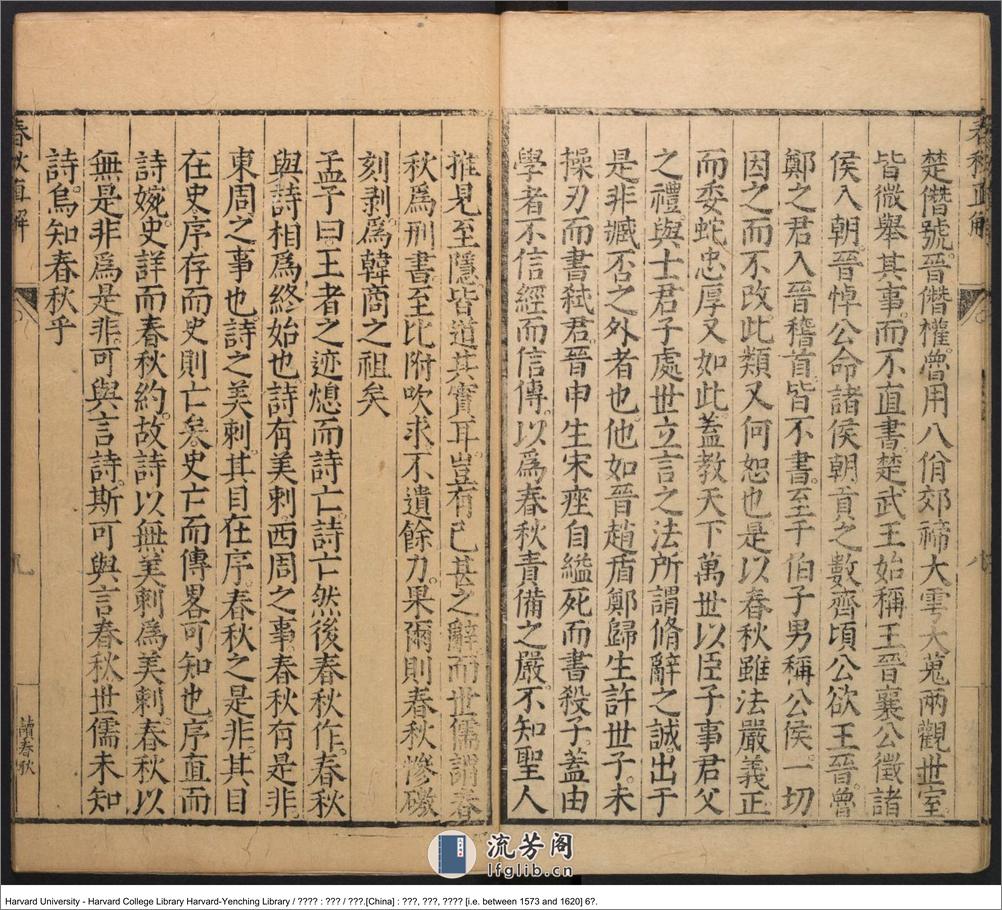 春秋直解
楚僭號晉僭權魯用八佾郊禘大雩大蒐兩觀世室
皆微舉其事而不直書楚武王始稱王晉襄公徵諸
侯入朝晉悼公命諸侯朝貢之數齊頃公欲王晉魯
鄭之君入晉稽首皆不書至于伯子男稱公侯一切
因之而不改此類又何恕也是以春秋雖法嚴義正
而委蛇忠厚又如此蓋教天下萬世以臣子事君父
之禮與士君子處世立言之法所謂脩辭之誠出于
是非臧否之外者也他如晉趙盾鄭歸生許世子未
操刃而書弒君晉申生宋痤自縊死而書殺子蓋由
學者不信經而信傳以為春秋責備之嚴不知聖人
推見至隱皆道其實耳豈有已甚之辭而世儒謂春
秋為刑書至比附吹求不遺餘力果爾則春秋慘礉
刻剥為韓商之祖矣
孟子曰王者之迹熄而詩亡詩亡然後春秋作春秋
與詩相為終始也詩有美刺西周之事春秋有是非
東周之事也詩之美刺其目在序春秋之是非其目
在史序存而史則亡矣史亡而傳畧可知也序直而
詩婉史詳而春秋約故詩以無美刺為美刺春秋以
無是非為是非可與言詩斯可與言春秋世儒未知
詩烏知春秋乎
春秋直解
九
讀春秋
流芳阁
lfglib.cn
Harvard University - Harvard College Library Harvard-Yenching Library / ???? : ??? / ???.[China] : ???, ???, ???? [i.e. between 1573 and 1620] 6?.